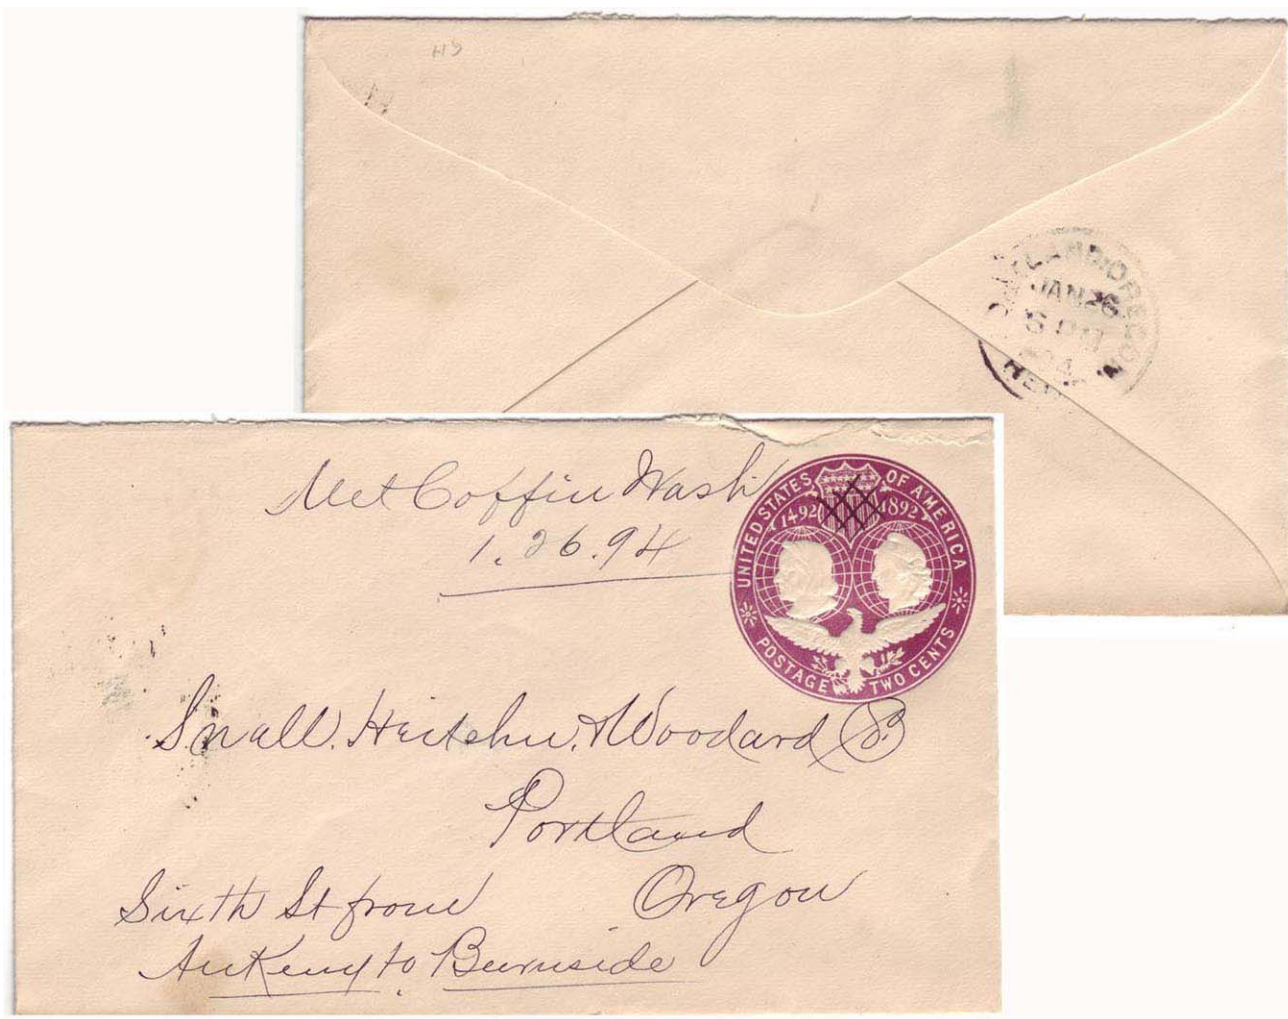 HS
OREGON
JAN 26
Met Coffin Wash
1.26.94
UNITED STATES OF AMERICA
1492 1892
POSTAGE TWO CENTS
Snall. Heitshu. & Woodard
Portland
Oregon
Sixth St from
Ankeny to Burnside